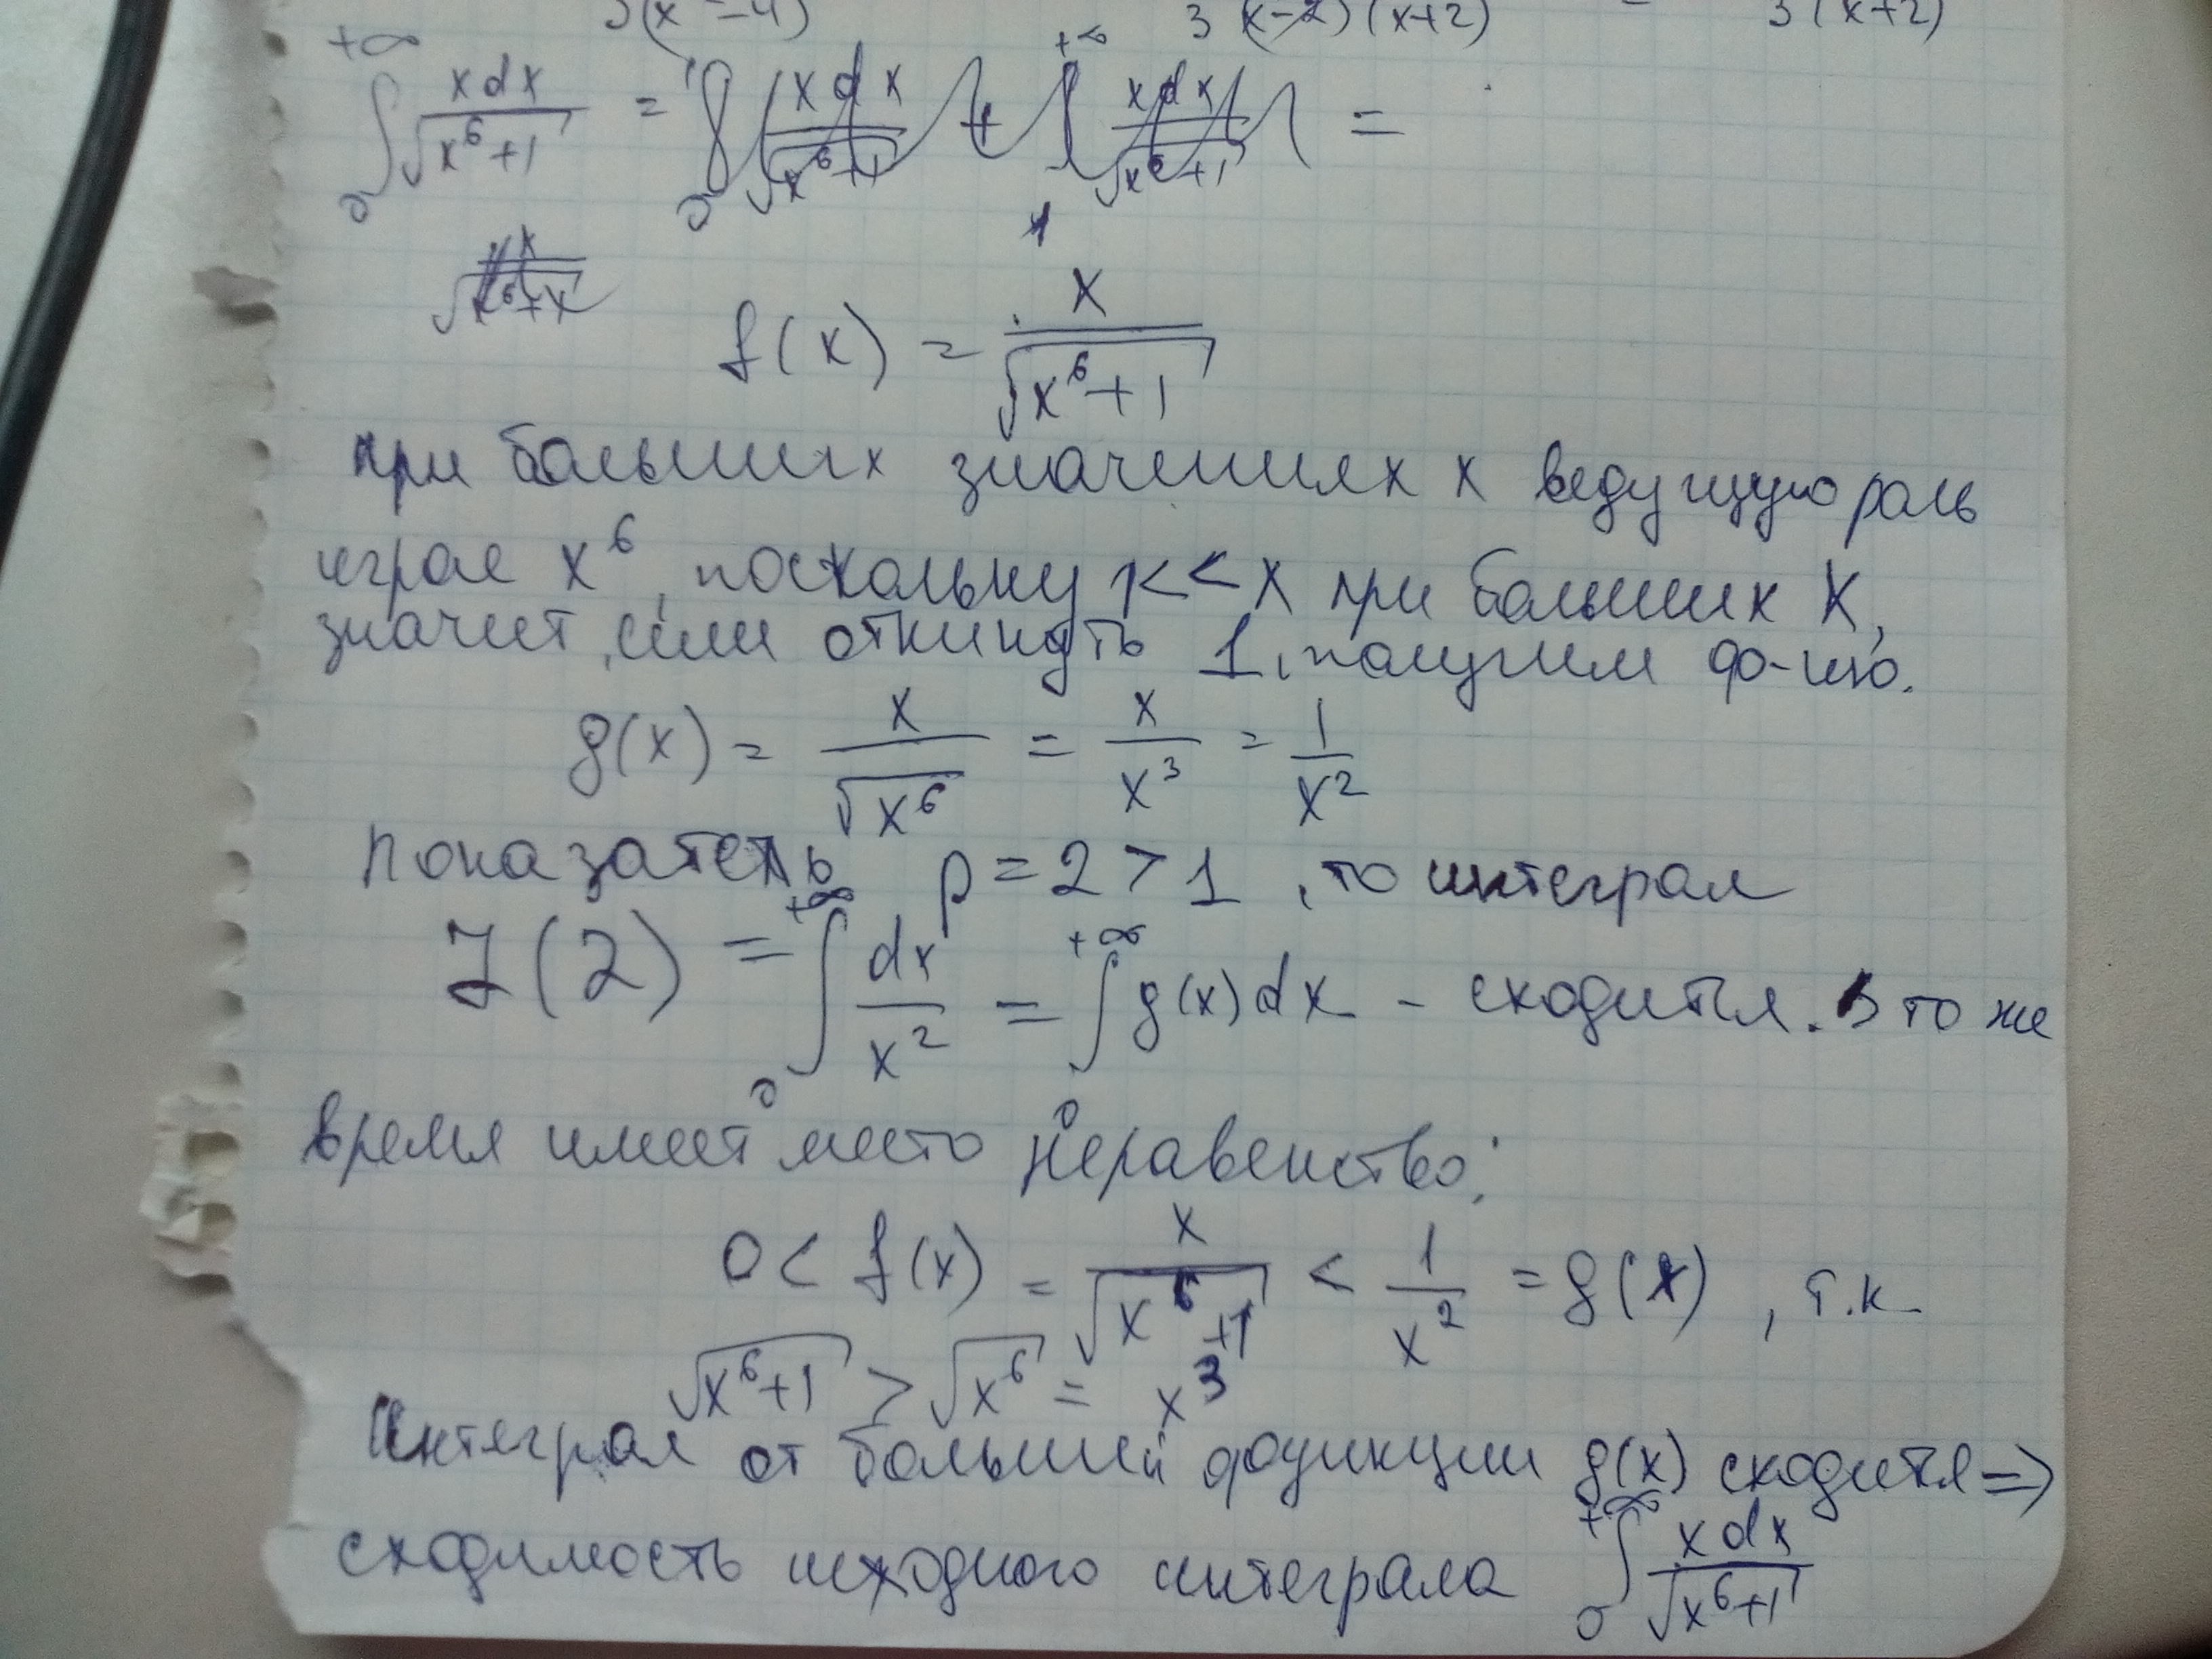 3(x²-4) 3(x-2)(x+2) = 3(x+2)
∫₀^{+∞} xdx/√(x⁶+1) = ∫₀¹ xdx/√(x⁶+1) + ∫₁^{+∞} xdx/√(x⁶+1) =
x/√(x⁶+x)
f(x) = x/√(x⁶+1)
при больших значениях x ведущую роль
играе x⁶, поскольку 1<<x при больших x,
значит, если откинуть 1, получим ф-ию.
g(x) = x/√(x⁶) = x/x³ = 1/x²
Показатель p=2>1, то интеграл
J(2) = ∫₀^{+∞} dx/x² = ∫₀^{+∞} g(x)dx - сходится. В то же
время имеет место неравенство:
0 < f(x) = x/√(x⁶+1) < 1/x² = g(x), т.к
√(x⁶+1) > √(x⁶) = x³
Интеграл от большей функции g(x) сходится =>
сходимость исходного интеграла ∫₀^{+∞} xdx/√(x⁶+1)